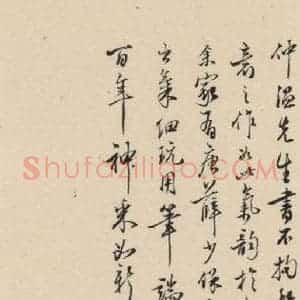 仲温先生書不拘
之作如此氣韻於
余家有唐薛少保
細玩用筆端
百年神采如新
Shufaziliao.com